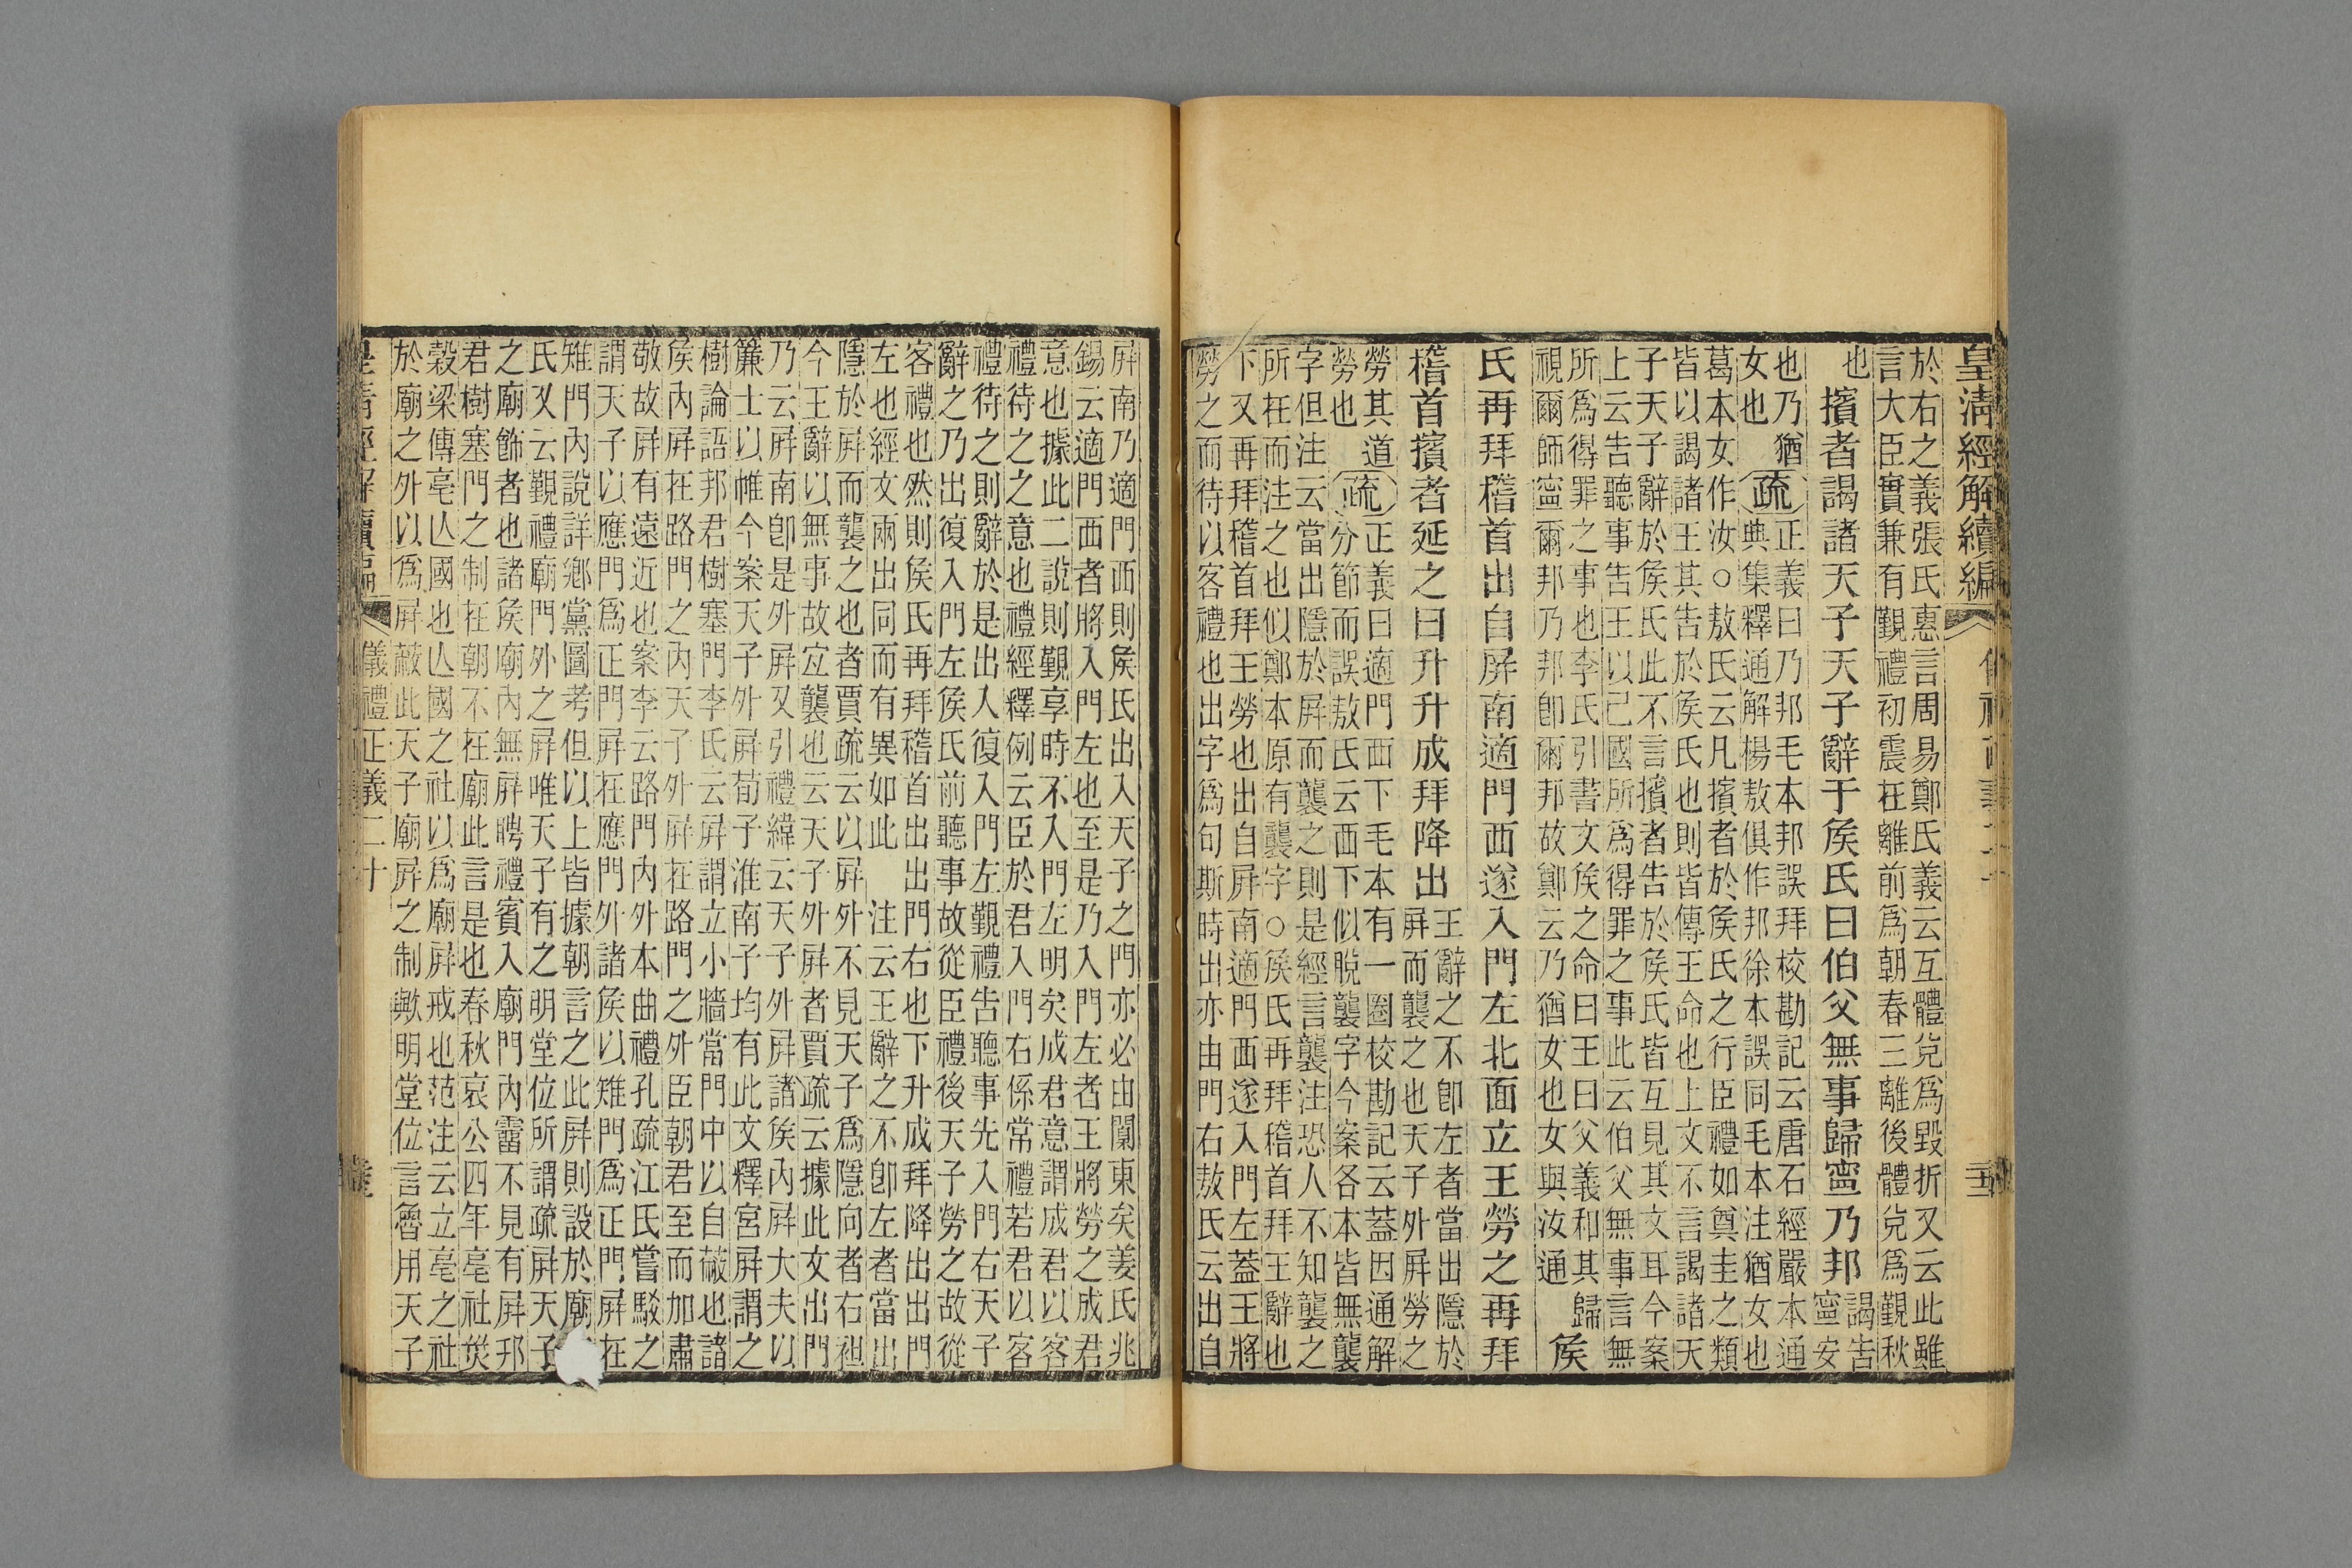 皇清經解續編
於右之義張氏惠言周易鄭氏義云互體兌爲毀折又云此雖
言大臣實兼有覲禮初震在離前爲朝春三離後體兌爲覲秋
也
擯者謁諸天子天子辭于矦氏曰伯父無事歸寧乃邦
謁告
寧安
也乃猶
女也
疏
正義曰乃邦毛本邦誤拜校勘記云唐石經嚴本通
典集釋通解楊敖俱作邦徐本誤同毛本注猶女也
葛本女作汝○敖氏云凡擯者於矦氏之行臣禮如奠圭之類
皆以謁諸王其告於矦氏也則皆傳王命也上文不言謁諸天
子天子辭於矦氏此不言擯者告於矦氏皆互見其文耳今案
上云告聽事告王以己國所爲得罪之事此云伯父無事言無
所爲得罪之事也李氏引書文矦之命曰王曰父義和其歸
視爾師寧爾邦乃邦卽爾邦故鄭云乃猶女也女與汝通
矦
氏再拜稽首出自屏南適門西遂入門左北面立王勞之再拜
稽首擯者延之曰升升成拜降出
王辭之不卽左者當出隱於
屏而襲之也天子外屏勞之
勞其道
勞也
疏
正義曰適門西下毛本有一圈校勘記云蓋因通解
分節而誤敖氏云西下似脫襲字今案各本皆無襲
字但注云當出隱於屏而襲之則是經言襲注恐人不知襲之
所在而注之也似鄭本原有襲字○矦氏再拜稽首拜王辭也
下又再拜稽首拜王勞也出自屏南適門西遂入門左蓋王將
勞之而待以客禮也出字爲句斯時出亦由門右敖氏云出自
屏南乃適門西則矦氏出入天子之門亦必由闑東矣姜氏兆
錫云適門西者將入門左也至是乃入門左者王將勞之成君
意也據此二說則覲享時不入門左明矣成君意謂成君以客
禮待之之意也禮經釋例云臣於君入門右係常禮若君以客
禮待之則辭於是出人復入門左覲禮告聽事先入門右天子
辭之乃出復入門左矦氏前聽事故從臣禮後天子勞之故從
客禮也然則矦氏再拜稽首出出門右也下升成拜降出出門
左也經文兩出同而有異如此 注云王辭之不卽左者當出
隱於屏而襲之也者賈疏云以屏外不見天子爲隱向者右袒
今王辭以無事故宜襲也云天子外屏者賈疏云據此文出門
乃云屏南卽是外屏又引禮緯云天子外屏諸矦內屏大夫以
簾士以帷今案天子外屏荀子淮南子均有此文釋宮屏謂之
樹論語邦君樹塞門李氏云屏謂立小牆當門中以自蔽也諸
矦內屏在路門之內天子外屏在路門之外臣朝君至而加肅
敬故屏有遠近也案李云路門內外本曲禮孔疏江氏嘗駁之
謂天子以應門爲正門屏在應門外諸矦以雉門爲正門屏在
雉門內說詳鄉黨圖考但以上皆據朝言之此屏則設於廟
氏又云覲禮廟門外之屏唯天子有之明堂位所謂疏屏天子
之廟飾者也諸矦廟內無屏聘禮賓入廟門內霤不見有屏邦
君樹塞門之制在朝不在廟此言是也春秋哀公四年亳社災
穀梁傳亳亾國也亾國之社以爲廟屏戒也范注云立亳之社
於廟之外以爲屏蔽此天子廟屏之制歟明堂位言魯用天子
儀禮正義二十